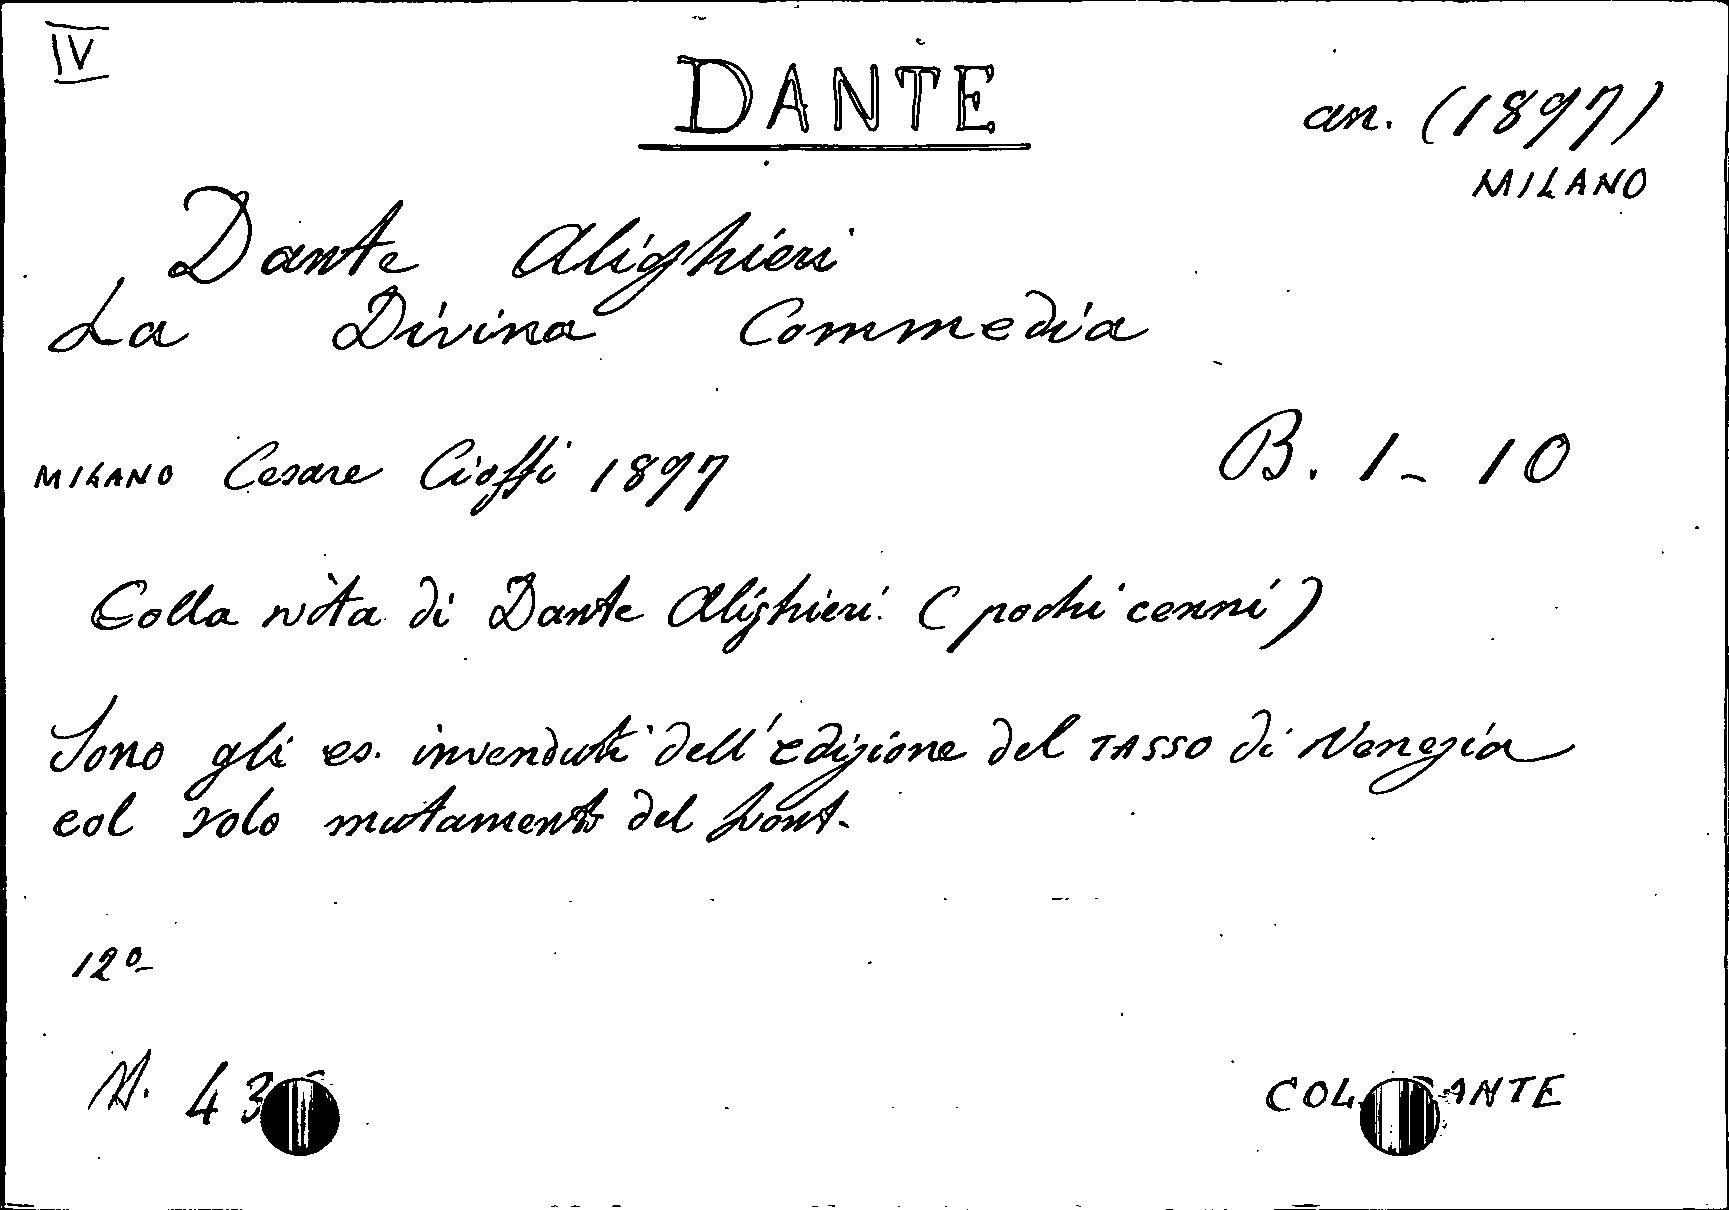 IV
DANTE
an. (1897)
MILANO
Dante Alighieri
La Divina Commedia
MILANO Cesare Cioffi 1897
B. 1 - 10
Colla vita di Dante Alighieri (pochi cenni)
Sono gli es. invenduti dell'edizione del TASSO di Venezia
col solo mutamento del front.
12º
N. 43
COL. DANTE